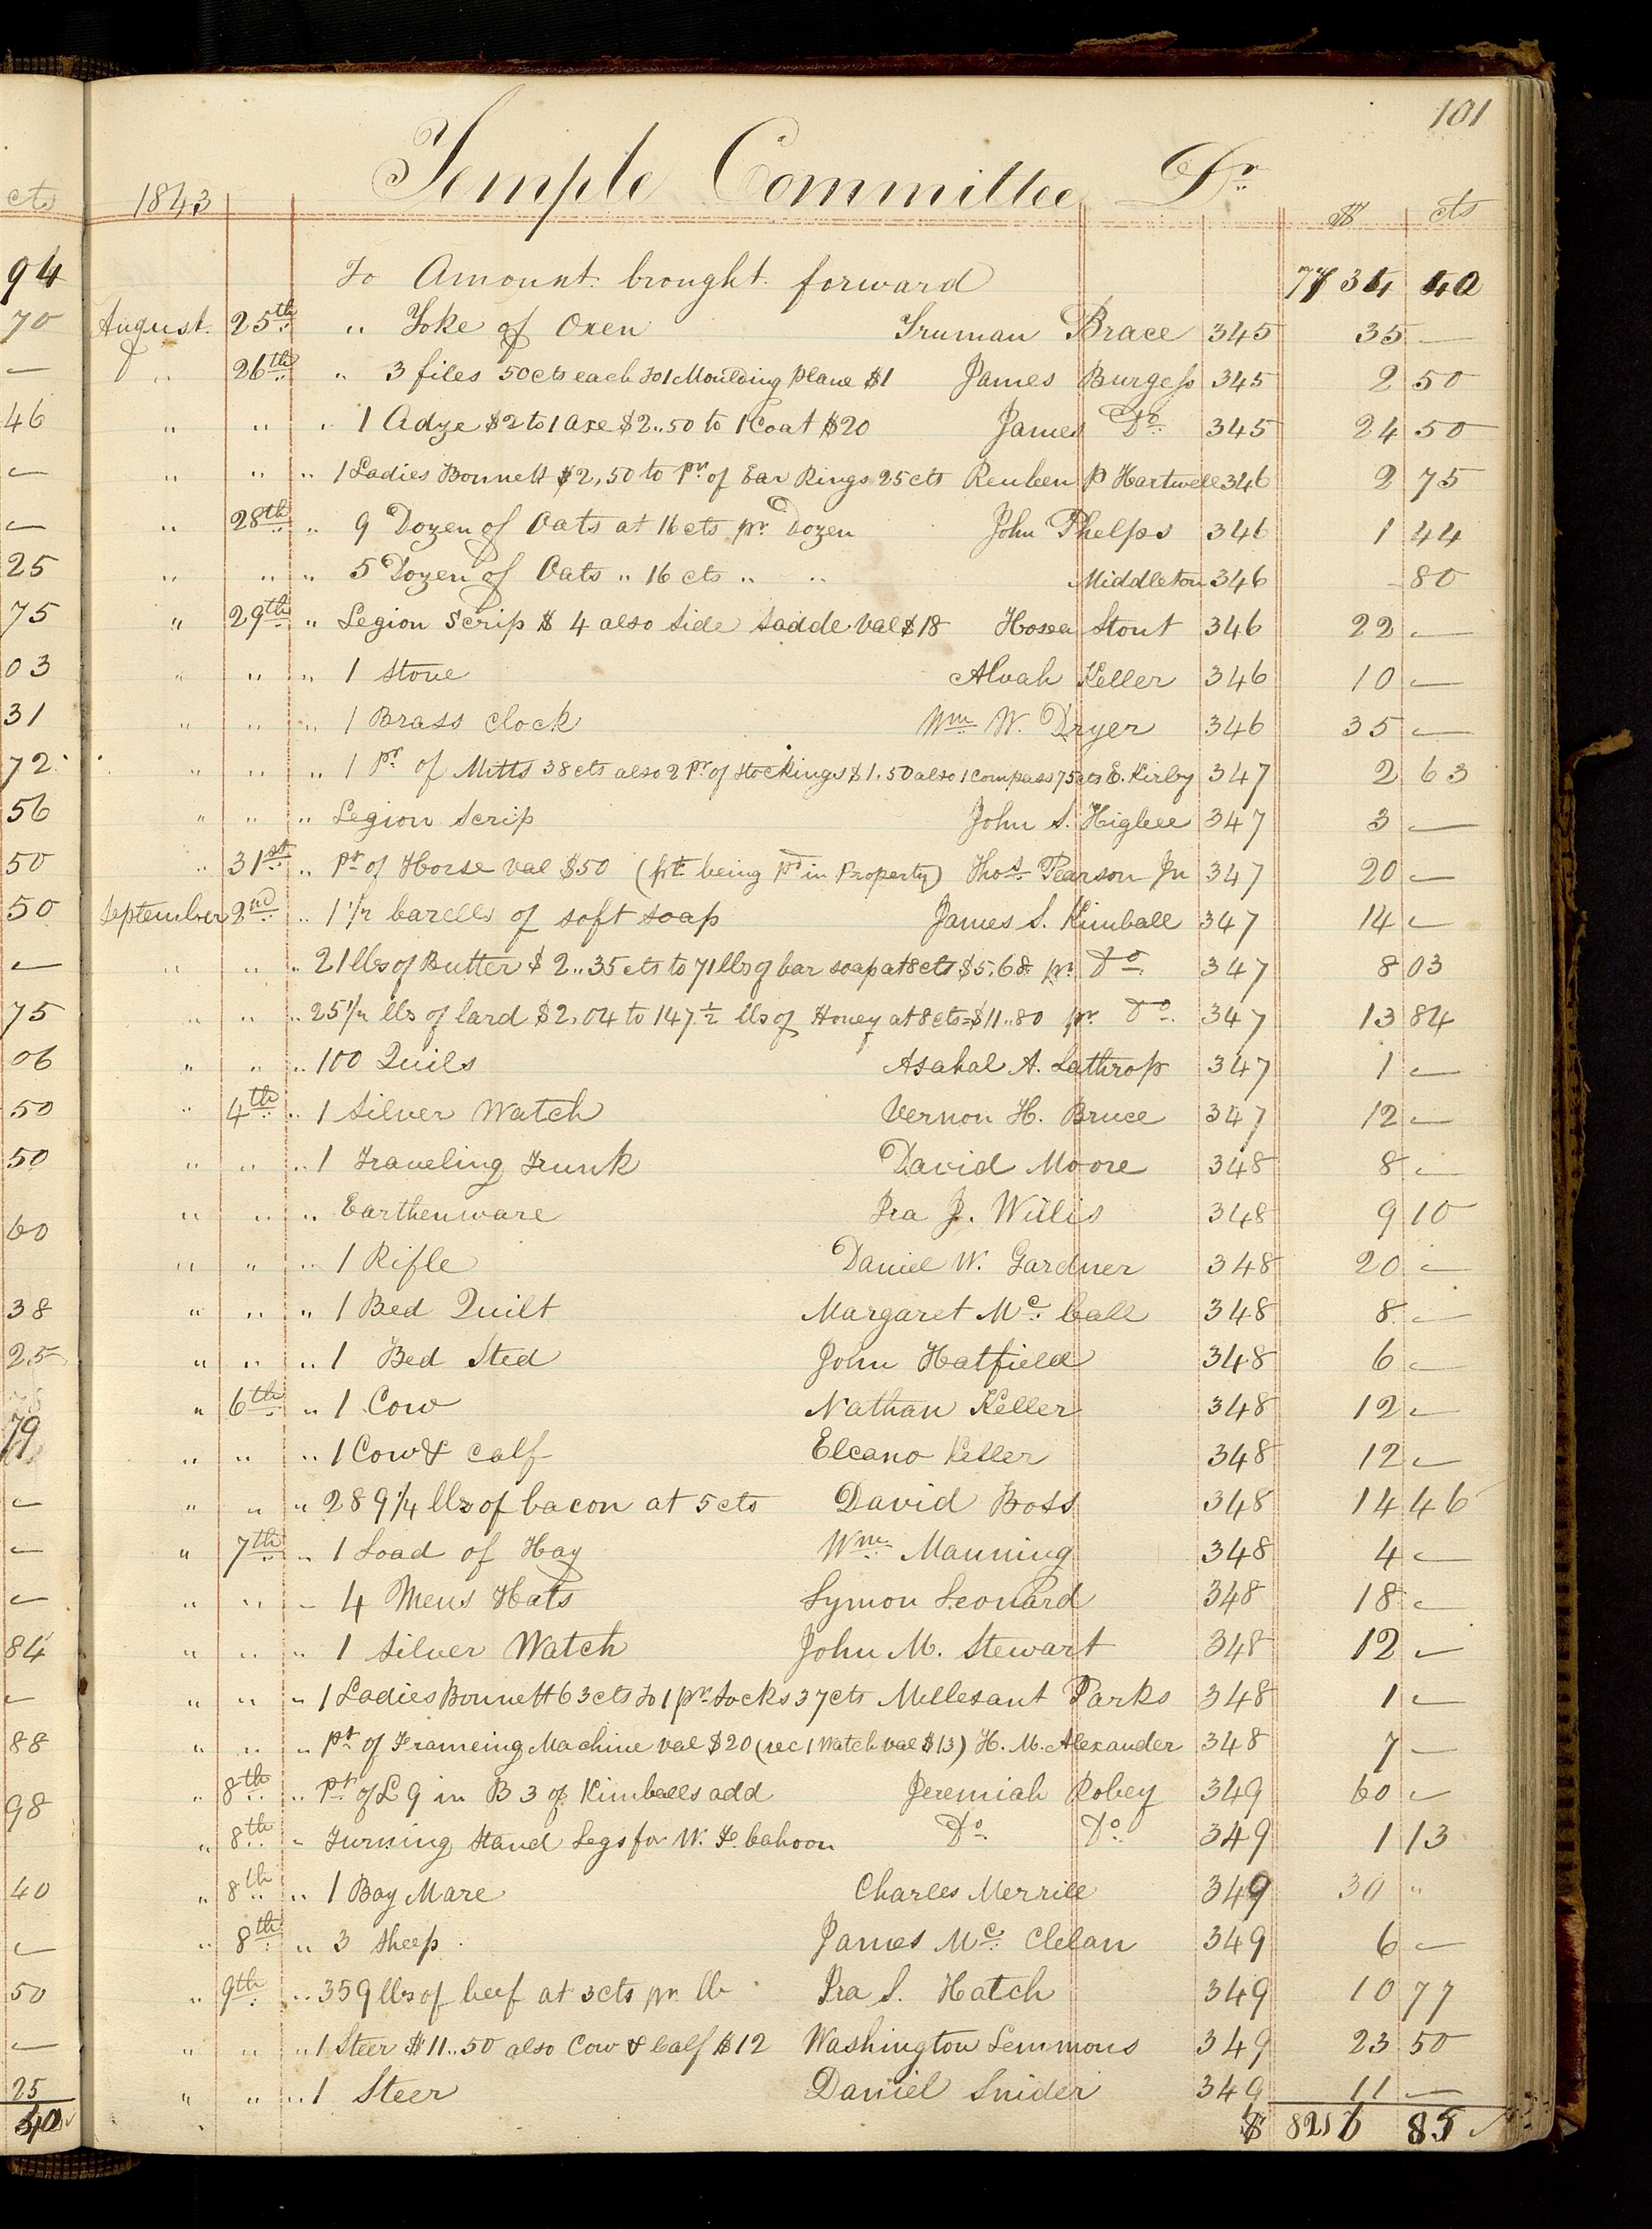 101
Temple Committee Dr.
cts 1843 $ cts
94 To Amount brought forward 7734 40
70 August 25th " Yoke of Oxen Truman Brace 345 35 —
— " 26th " 3 files 50cts each to 1 Moulding Plane $1 James Burgess 345 2 50
46 " " " 1 Adze $2 to 1 axe $2..50 to 1 Coat $20 James Do. 345 24 50
— " " " 1 Ladies Bonnett $2,50 to Pr. of Ear Rings 25cts Reuben P Hartwell 346 2 75
— " 28th " 9 Dozen of Oats at 16 cts pr. Dozen John Phelps 346 1 44
25 " " " 5 Dozen of Oats " 16 cts " " Middleton 346 - 80
75 " 29th " Legion Scrip $ 4 also Side Sadde val $18 Hosea Stout 346 22 —
03 " " " 1 Stove Alvah Keller 346 10 —
31 " " " 1 Brass Clock Wm. W. Dryer 346 35 —
72 " " " 1 Pr. of Mitts 38cts also 2 Pr of Stockings $1.50 also 1 Compass 75cts E. Kirby 347 2 63
56 " " " Legion Scrip John S. Higbee 347 3 —
50 " 31st " Pt of Horse val $50 (pt. being pd in Property) Thos. Pearson Jn 347 20 —
50 September 2nd " 1 1/2 barells of soft soap James S. Kimball 347 14 —
— " " " 21 lbs of Butter $ 2..35cts to 71 lbs of bar soap at 8cts $5.68 pr. Do. 347 8 03
75 " " " 25 1/2 lbs of lard $2.04 to 147 1/2 lbs of Honey at 8cts=$11..80 pr. Do. 347 13 84
06 " " " 100 Quils Asahal A. Lathrop 347 1 —
50 " 4th " 1 Silver Watch Vernon H. Bruce 347 12 —
50 " " " 1 Traveling Trunk David Moore 348 8 —
60 " " " Earthenware Ira J. Willis 348 9 10
" " " 1 Rifle Daniel W. Gardner 348 20 —
38 " " " 1 Bed Quilt Margaret Mc. Call 348 8 —
25 " " " 1 Bed Sted John Hatfield 348 6 —
" 6th " 1 Cow Nathan Keller 348 12 —
79 " " " 1 Cow & Calf Elcano Keller 348 12 —
— " " " 289 1/4 lbs of bacon at 5cts David Boss 348 14 46
— " 7th " 1 Load of Hay Wm. Manning 348 4 —
— " " " 4 Mens Hats Lymon Leonard 348 18 —
84 " " " 1 Silver Watch John M. Stewart 348 12 —
— " " " 1 Ladies Bonnett 63cts to 1 pr. Socks 37cts Mellesant Parks 348 1 —
88 " " " Pt of Frameing Machine val $20 (rec 1 Watch val $13) H. M. Alexander 348 7 —
98 " 8th " Pt. of L 9 in B 3 of Kimballs add Jeremiah Robey 349 60 —
" 8th " Turning Stand Legs for W. F. Cahoon Do. Do. 349 1 13
40 " 8th " 1 Bay Mare Charles Merrill 349 30 "
— " 8th " 3 Sheep James Mc. Clelan 349 6 —
50 " 9th " 359 lbs of beef at 3cts pr. lb Ira S. Hatch 349 10 77
— " " " 1 Steer $11..50 also Cow & Calf $12 Washington Lemmons 349 23 50
25 " " " 1 Steer Daniel Snider 349 11 —
40 $ 8256 85